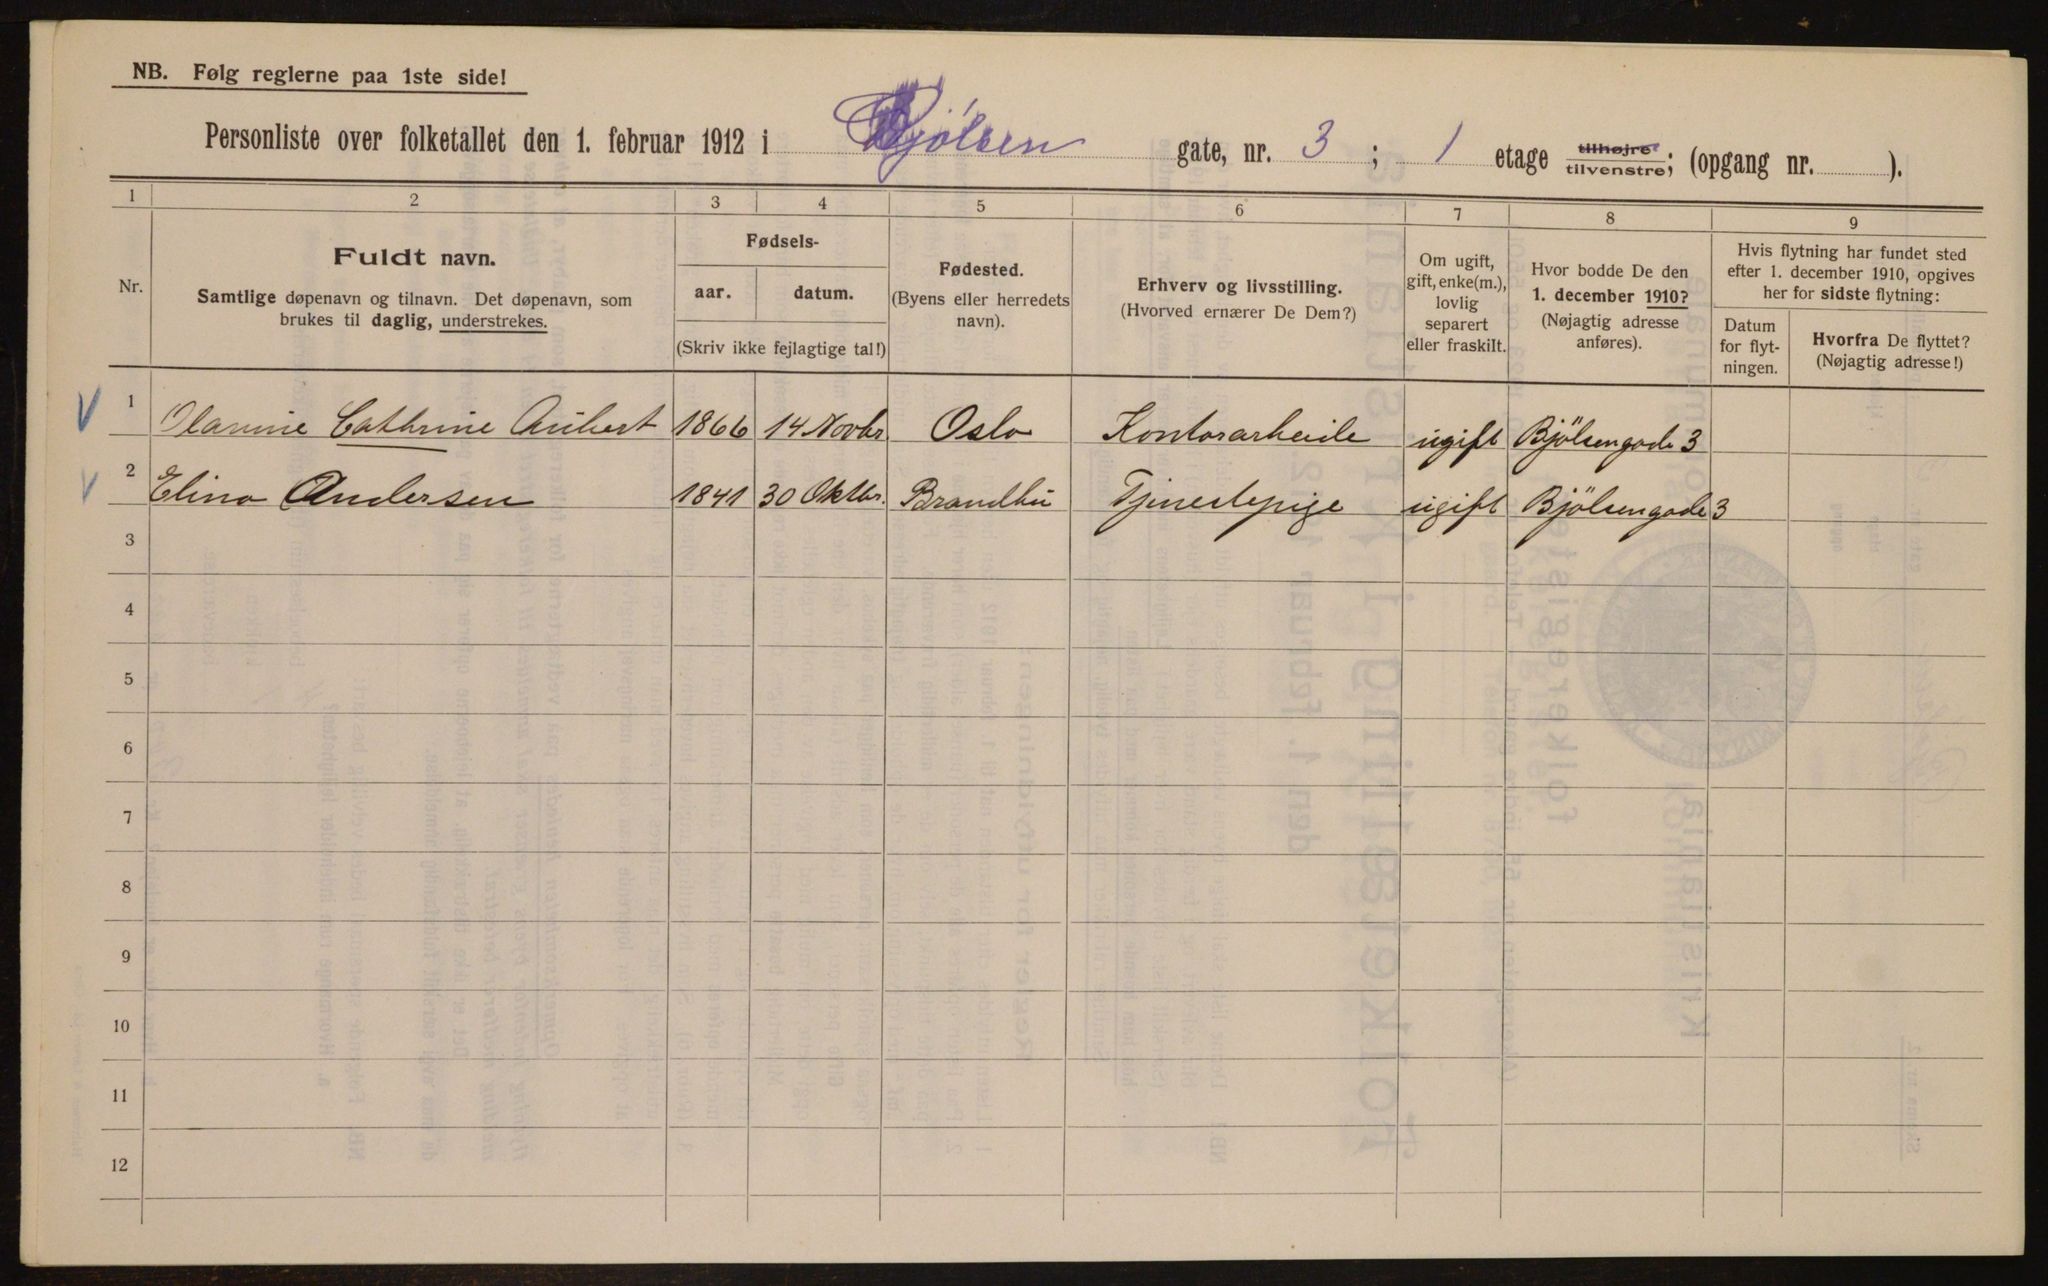 NB. Følg reglerne paa 1ste side!
Personliste over folketallet den 1. februar 1912 i Bjølsen gate, nr. 3 ; 1 etage tilhøjre tilvenstre; (opgang nr. ).
1 2 3 4 5 6 7 8 9
Nr.
Fuldt navn.
Samtlige døpenavn og tilnavn. Det døpenavn, som
brukes til daglig, understrekes.
Fødsels-
aar. datum.
(Skriv ikke fejlagtige tal!)
Fødested.
(Byens eller herredets
navn).
Erhverv og livsstilling.
(Hvorved ernærer De Dem?)
Om ugift,
gift, enke(m.),
lovlig
separert
eller fraskilt.
Hvor bodde De den
1. december 1910?
(Nøjagtig adresse
anføres).
Hvis flytning har fundet sted
efter 1. december 1910, opgives
her for sidste flytning:
Datum
for flyt-
ningen.
Hvorfra De flyttet?
(Nøjagtig adresse!)
1 Olamine Cathrine Aubert 1866 14 Novbr. Oslo Kontorarbeide ugift Bjölsengade 3
2 Elina Andersen 1841 30 Oktbr. Brandbu Tjenestepige ugift Bjölsengade 3
3
4
5
6
7
8
9
10
11
12